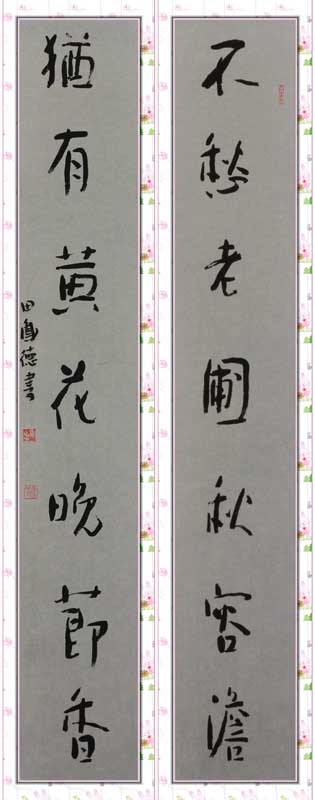 不愁老圃秋容澹
猶有黄花晚節香
田园德書